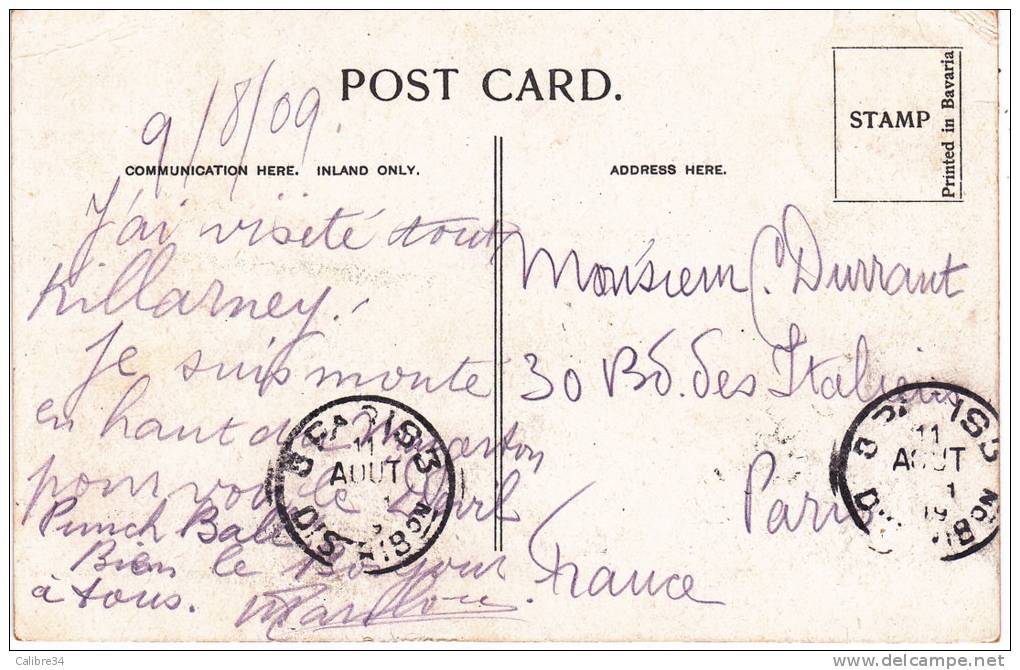 POST CARD.
9/8/09.
COMMUNICATION HERE. INLAND ONLY.
J'ai visité tout
Killarney.
Je suis monté
en haut du
pour voir le Devil
Punch Ball
Bien le Bonjour
à tous.
ADDRESS HERE.
STAMP
Printed in Bavaria
Monsieur C. Durrant
30 Bd. des Italiens
Paris
France
PARIS
11
AOUT
DISTRIB
PARIS
11
AOUT
19
Calibre34
www.delcampe.net